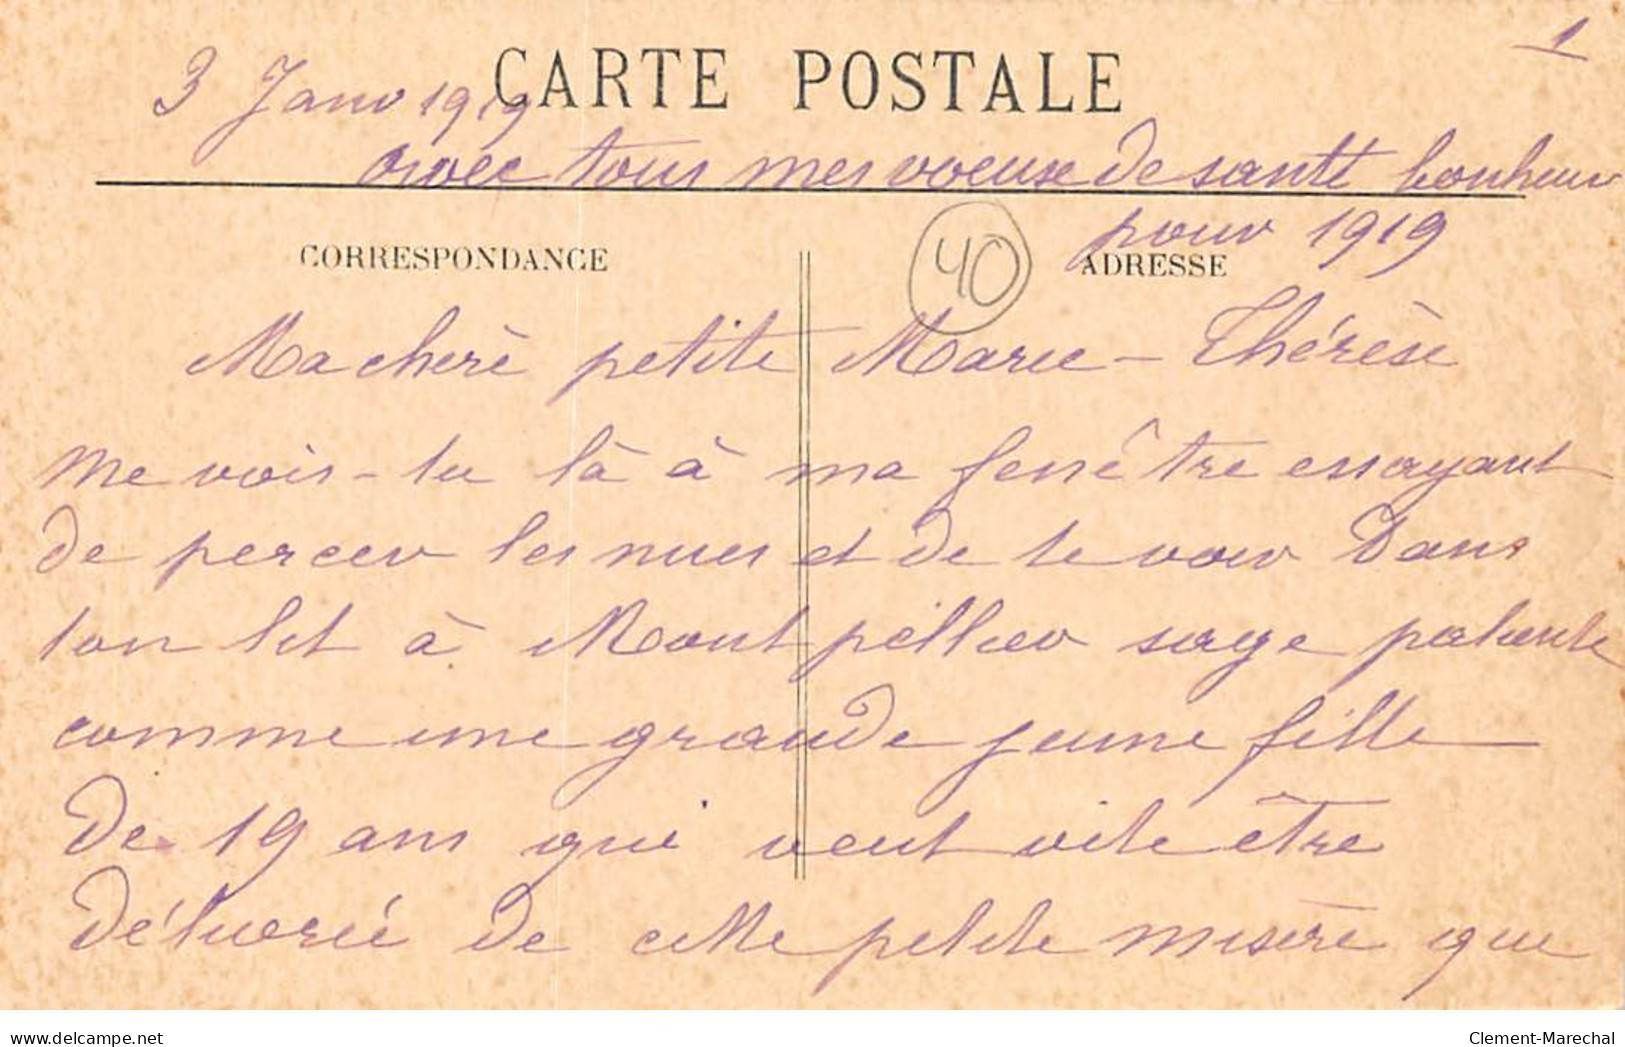 1
CARTE POSTALE
3 Janv 1919
avec tous mes voeux de santé bonheur
pour 1919
CORRESPONDANCE
40
ADRESSE
Ma cherè petite Marie-Thérèse
me vois-tu là à ma fenêtre essayant
de percer les nues et de te voir dans
ton lit à Montpellier sage patiente
comme une grande jeune fille
de 19 ans qui veut vite être
délivrée de cette petite misère que
www.delcampe.net
Clement-Marechal